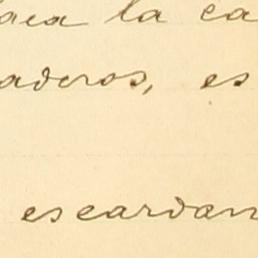 la ca
aderos, es
escardan